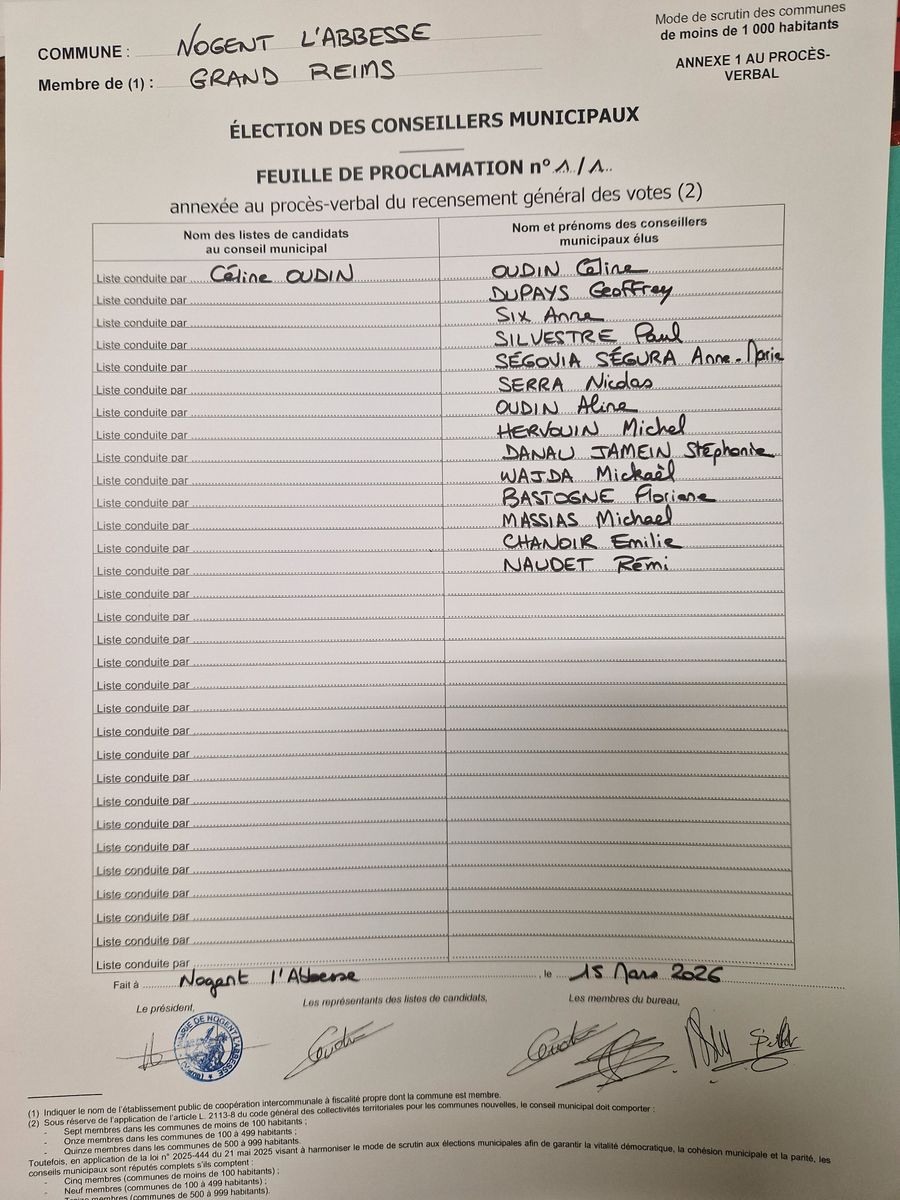 COMMUNE : NOGENT L'ABBESSE
Membre de (1) : GRAND REIMS
Mode de scrutin des communes
de moins de 1 000 habitants
ANNEXE 1 AU PROCÈS-
VERBAL
ÉLECTION DES CONSEILLERS MUNICIPAUX
FEUILLE DE PROCLAMATION n° 1/1
annexée au procès-verbal du recensement général des votes (2)
Nom des listes de candidats
au conseil municipal
Nom et prénoms des conseillers
municipaux élus
Liste conduite par Céline OUDIN OUDIN Céline
Liste conduite par DUPAYS Geoffrey
Liste conduite par SIX Anne
Liste conduite par SILVESTRE Paul
Liste conduite par SÉGOVIA SÉGURA Anne-Marie
Liste conduite par SERRA Nicolas
Liste conduite par OUDIN Aline
Liste conduite par HERVOUIN Michel
Liste conduite par DANAU JAMEIN Stéphanie
Liste conduite par WAJDA Mickaël
Liste conduite par BASTOGNE Floriane
Liste conduite par MASSIAS Michael
Liste conduite par CHANOIR Emilie
Liste conduite par NAUDET Rémi
Liste conduite par
Liste conduite par
Liste conduite par
Liste conduite par
Liste conduite par
Liste conduite par
Liste conduite par
Liste conduite par
Liste conduite par
Liste conduite par
Liste conduite par
Liste conduite par
Liste conduite par
Liste conduite par
Liste conduite par
Liste conduite par
Liste conduite par
Fait à Nogent l'Abbesse , le 15 Mars 2026
Le président,
Les représentants des listes de candidats,
Les membres du bureau,
MAIRIE DE NOGENT L'ABBESSE
(Marne)
(1) Indiquer le nom de l'établissement public de coopération intercommunale à fiscalité propre dont la commune est membre.
(2) Sous réserve de l'application de l'article L. 2113-8 du code général des collectivités territoriales pour les communes nouvelles, le conseil municipal doit comporter :
- Sept membres dans les communes de moins de 100 habitants ;
- Onze membres dans les communes de 100 à 499 habitants ;
- Quinze membres dans les communes de 500 à 999 habitants.
Toutefois, en application de la loi n° 2025-444 du 21 mai 2025 visant à harmoniser le mode de scrutin aux élections municipales afin de garantir la vitalité démocratique, la cohésion municipale et la parité, les
conseils municipaux sont réputés complets s'ils comptent :
- Cinq membres (communes de moins de 100 habitants) ;
- Neuf membres (communes de 100 à 499 habitants) ;
- Treize membres (communes de 500 à 999 habitants).